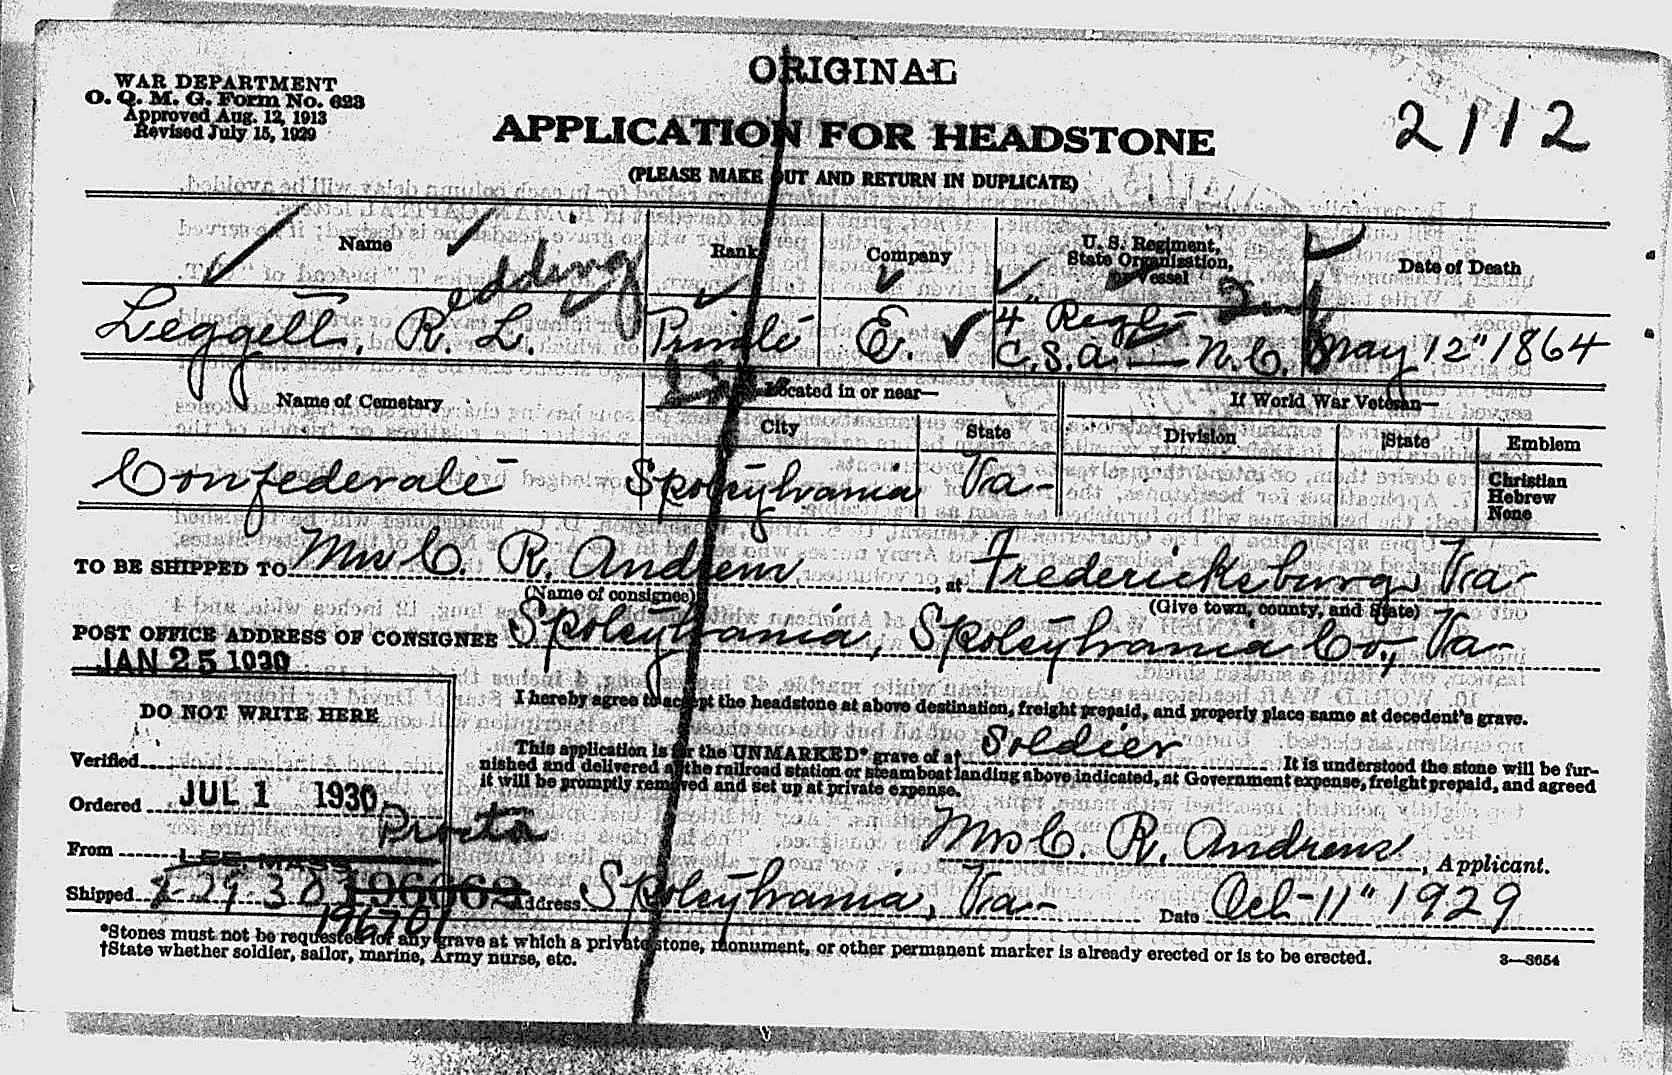 ORIGINAL
WAR DEPARTMENT
O. Q. M. G. Form No. 623
Approved Aug. 12, 1913
Revised July 15, 1929
APPLICATION FOR HEADSTONE
2112
(PLEASE MAKE OUT AND RETURN IN DUPLICATE)
Name
Rank
Company
U. S. Regiment,
State Organization,
or Vessel
Date of Death
edding
Inf
Leggett, R. L.
Private
E.
4" Regt
C.S.A. — N.C.
May 12" 1864
Name of Cemetary
Located in or near—
If World War Veteran—
City
State
Division
State
Emblem
Confederate
Spotsylvania
Va-
Christian
Hebrew
None
TO BE SHIPPED TO Mrs C. R. Andrews, at Fredericksburg, Va-
(Name of consignee)
(Give town, county, and State)
POST OFFICE ADDRESS OF CONSIGNEE Spotsylvania, Spotsylvania Co., Va-
JAN 25 1930
DO NOT WRITE HERE
I hereby agree to accept the headstone at above destination, freight prepaid, and properly place same at decedent's grave.
This application is for the UNMARKED* grave of a† Soldier. It is understood the stone will be fur-
nished and delivered at the railroad station or steamboat landing above indicated, at Government expense, freight prepaid, and agreed
it will be promptly removed and set up at private expense.
Verified
Ordered JUL 1 1930
Proctor
From LEE MASS
Mrs C. R. Andrews, Applicant.
Shipped 8-29-30 196062
Address Spotsylvania, Va-
Date Oct-11" 1929
196701
*Stones must not be requested for any grave at which a private stone, monument, or other permanent marker is already erected or is to be erected.
†State whether soldier, sailor, marine, Army nurse, etc.
3—3654